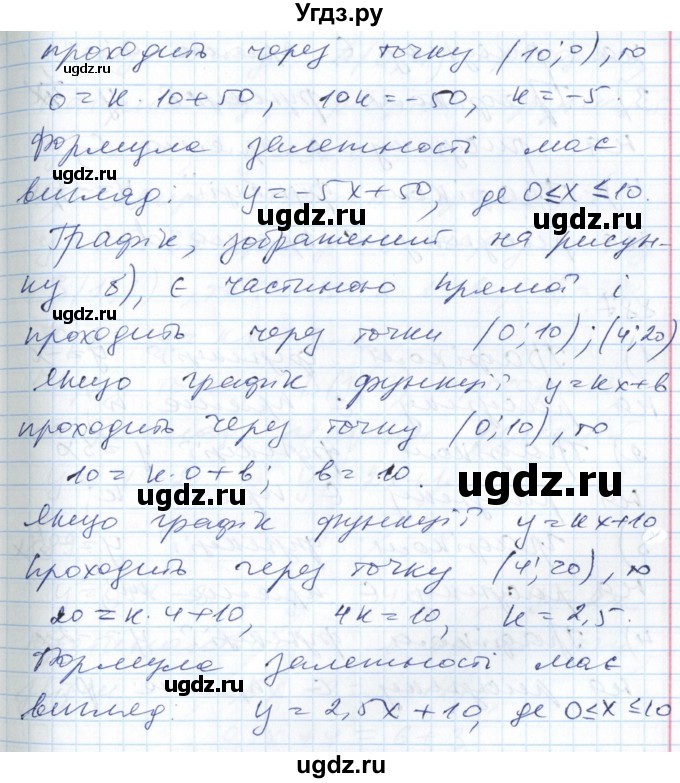 Угдз.ру
проходить через точку (10; 0), то
0 = k · 10 + 50, 10k = -50, k = -5.
Формула залежності має
вигляд: y = -5x + 50, де 0 ≤ x ≤ 10.
Графік, зображений на рисун-
ку б), є частиною прямої і
проходить через точки (0; 10); (4; 20)
Якщо графік функції y = kx + b
проходить через точку (0; 10), то
10 = k · 0 + b; b = 10.
Якщо графік функції y = kx + 10
проходить через точку (4; 20), то
20 = k · 4 + 10, 4k = 10, k = 2,5.
Формула залежності має
вигляд: y = 2,5x + 10, де 0 ≤ x ≤ 10
ugdz.ru
ugdz.ru
ugdz.ru
ugdz.ru
ugdz.ru
ugdz.ru
ugdz.ru
ugdz.ru
ugdz.ru
ugdz.ru
ugdz.ru
ugdz.ru
ugdz.ru